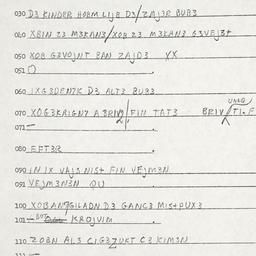 030 D3 KINDER HOBM LIJB D3/ZAJ3R BUB3
040 XBIN 23 M3KAN3/XOB 23 M3KAN3 G3VEJ3t
050 XOB G3VOJNT BAN ZAJD3 XX
051
060 IXG3DENJK D3 ALT3 BUB3
070 XOG3KRIGNJ A BRIV/FIN TAT3 BRIV TI.F
071 -
080 EFT3R
090 IN IX VAJS NIST FIN VEJM3N
091 VEJM3N3N DU
100 XOBAN?GILADN D3 GANC3 MISTPUX3
101 - KROJVIM
110 ZOBN ALS CIG3ZUKT C3 KIM3N